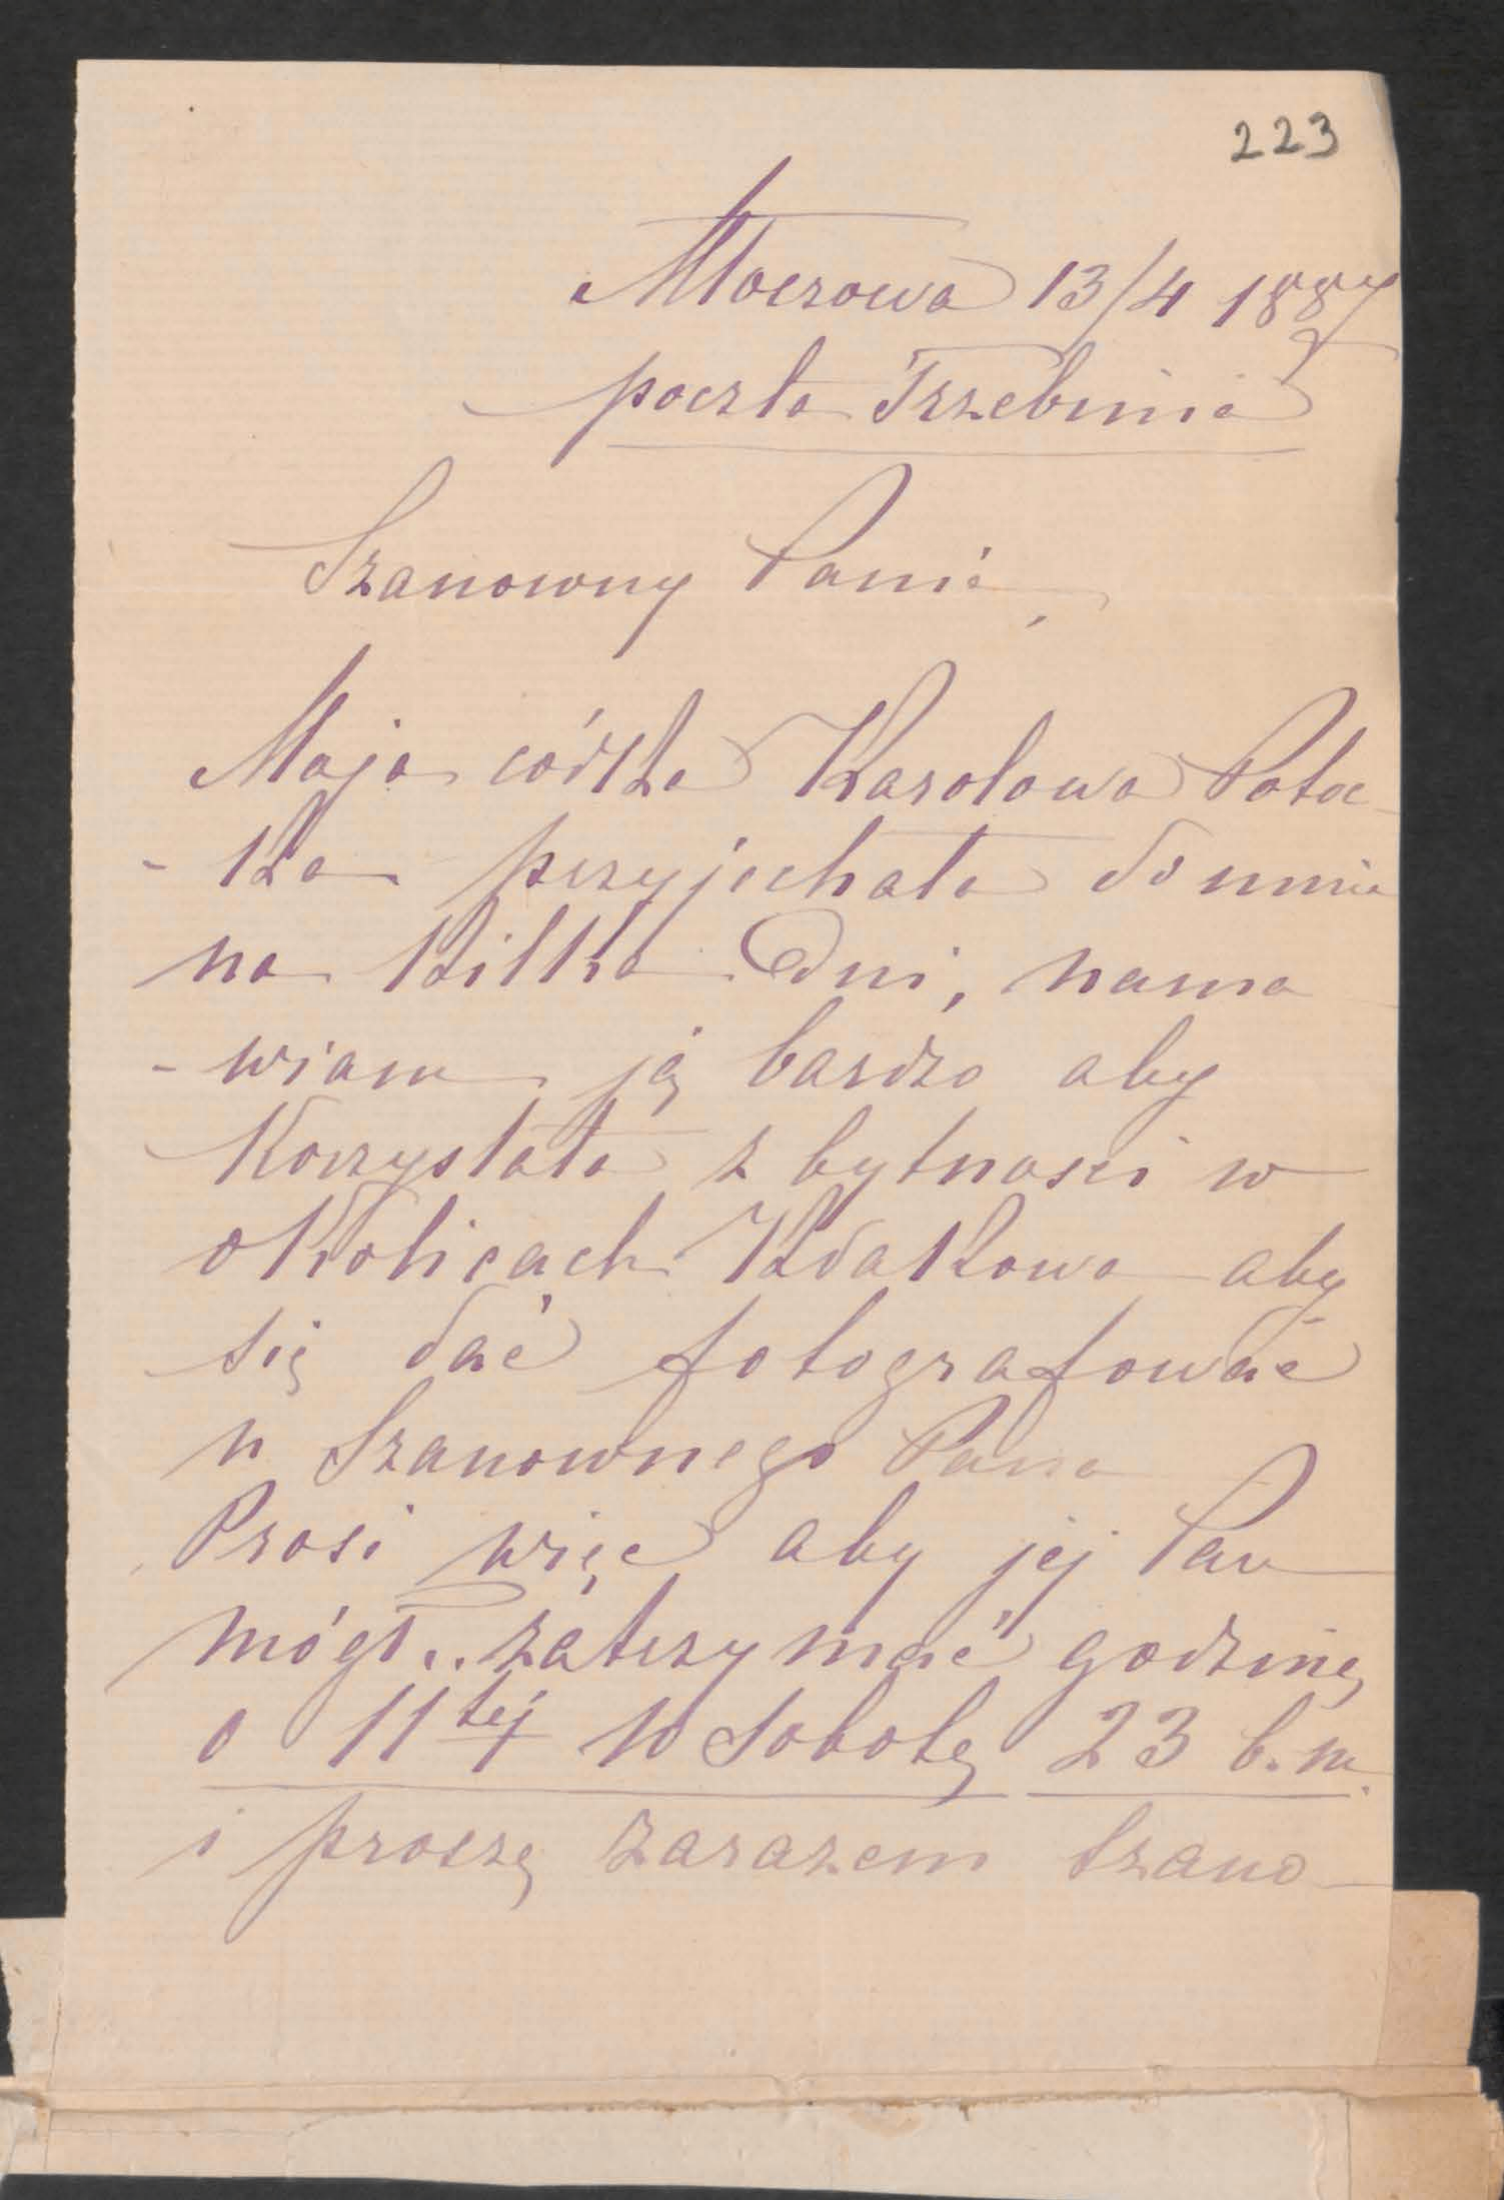 223
Młoszowa 13/4 1887
poczta Trzebinia
Szanowny Panie,
Moja córka Karolowa Potoc-
- ka przyjechała do mnie
na kilka dni, nama
- wiam ją bardzo aby
Korzystała z bytności w
okolicach Krakowa aby
się dać fotografować
u Szanownego Pana
Prosi więc aby jej Pan
mógł .. zatrzymać godzinę
o 11tej w Sobotę 23 b. m.
i proszę zarazem Szano-